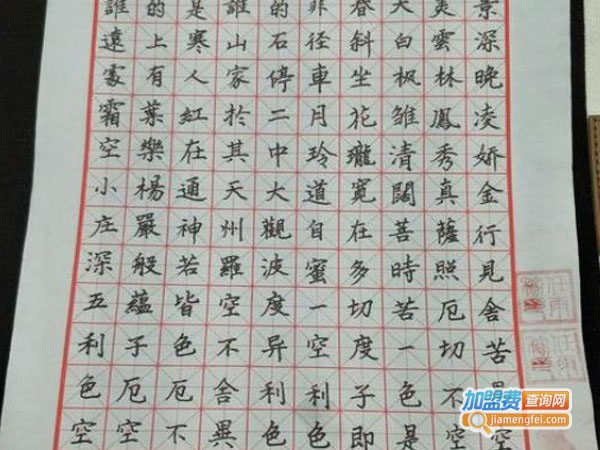 誰的是誰的菲春天夷景
遠上寒山石径斜白雲深
處有人家停車坐枫林晚
霜葉紅於二月花雏鳳凌
空樂在其中玲瓏清秀娇
小楊通天大道寬闊真金
庄嚴神州觀自在菩薩行
深般若羅波蜜多時照見
五蘊皆空度一切苦厄舍
利子色不异空度一切苦
色厄厄舍利利子色不
空空不異色色即是空空
加盟费查询网
jiamengfei.com